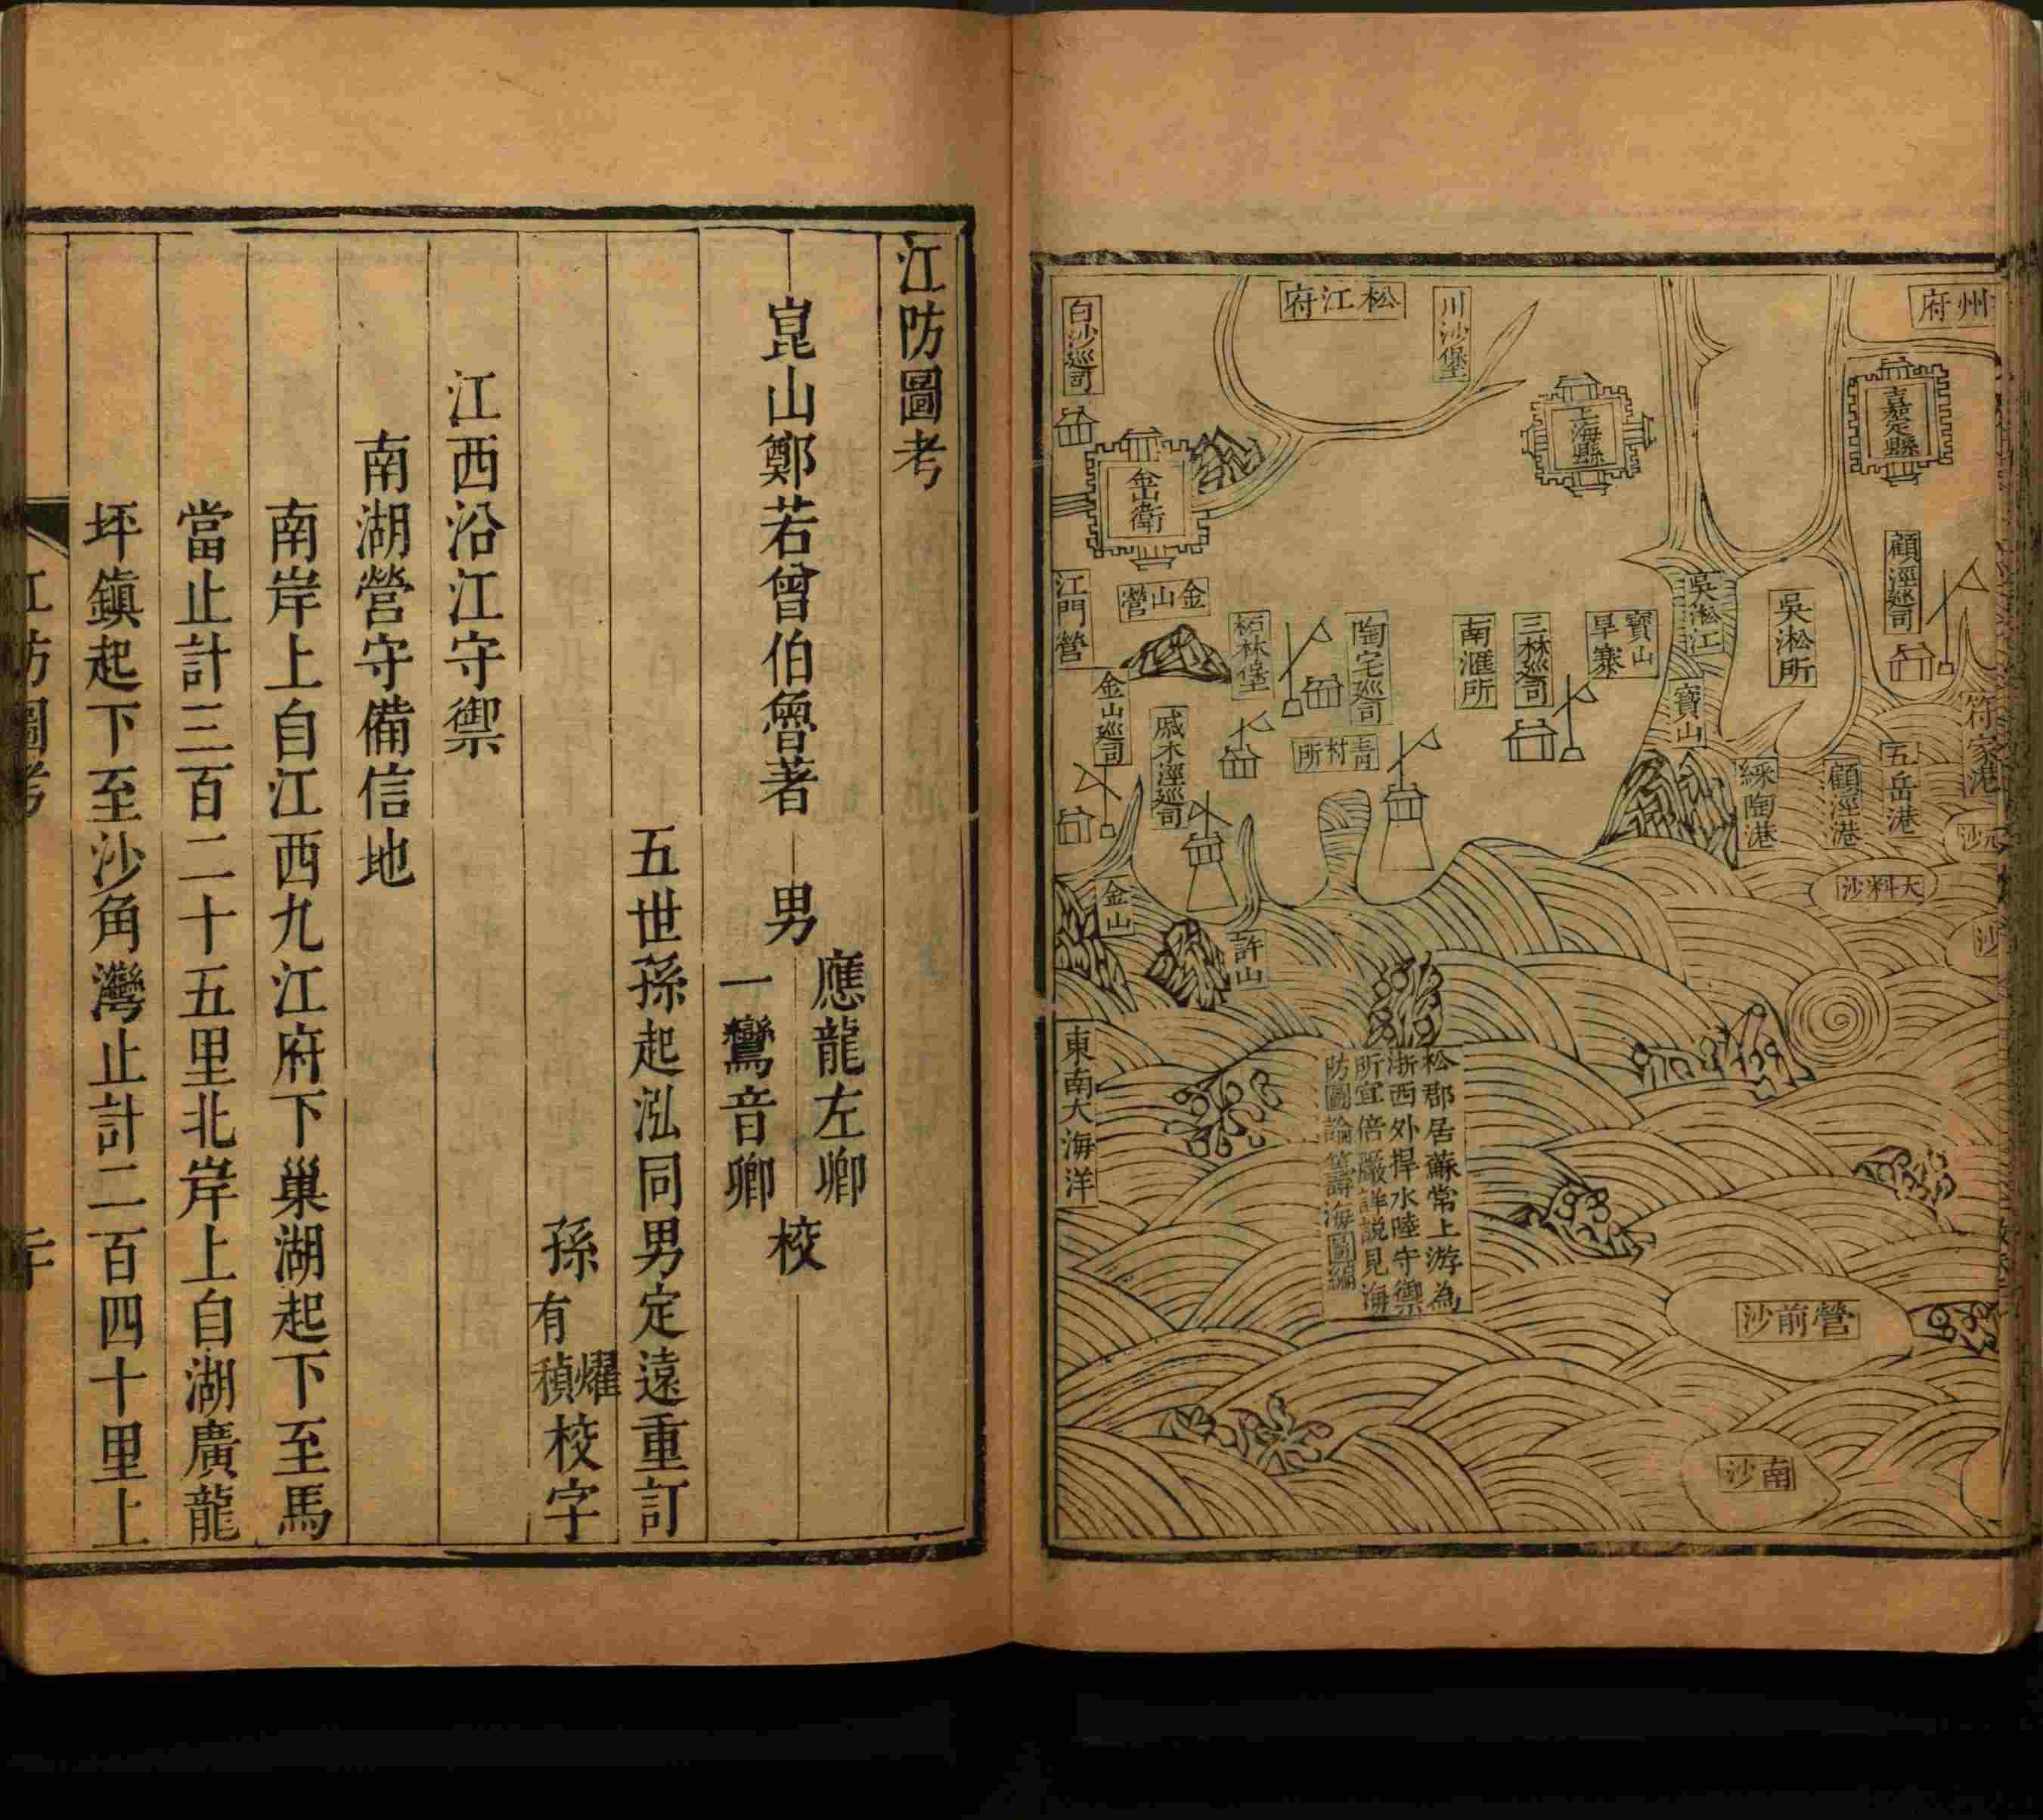 州府
嘉定縣
顧涇廵司
符家港
五岳港
顧涇港
綵陶港
吳淞所
吳淞江
寶山
寶山
旱寨
上海縣
三林廵司
南滙所
川沙堡
松江府
陶宅廵司
青村所
柘林堡
白沙廵司
金山衛
金山營
江門營
金山廵司
戚木涇廵司
金山
許山
沙
大料沙
沙
營前沙
南沙
東南大海洋
松郡居蘇常上游為
浙西外捍水陸守禦
所宜倍嚴詳説見海
防圖論籌海圖編
江防圖考
崑山鄭若曾伯魯著 男
應龍左卿
一鸞音卿
校
五世孫起泓同男定遠重訂
孫有燿
禎
校字
江西沿江守禦
南湖營守備信地
南岸上自江西九江府下巢湖起下至馬
當止計三百二十五里北岸上自湖廣龍
坪鎮起下至沙角灣止計二百四十里上
江防圖考